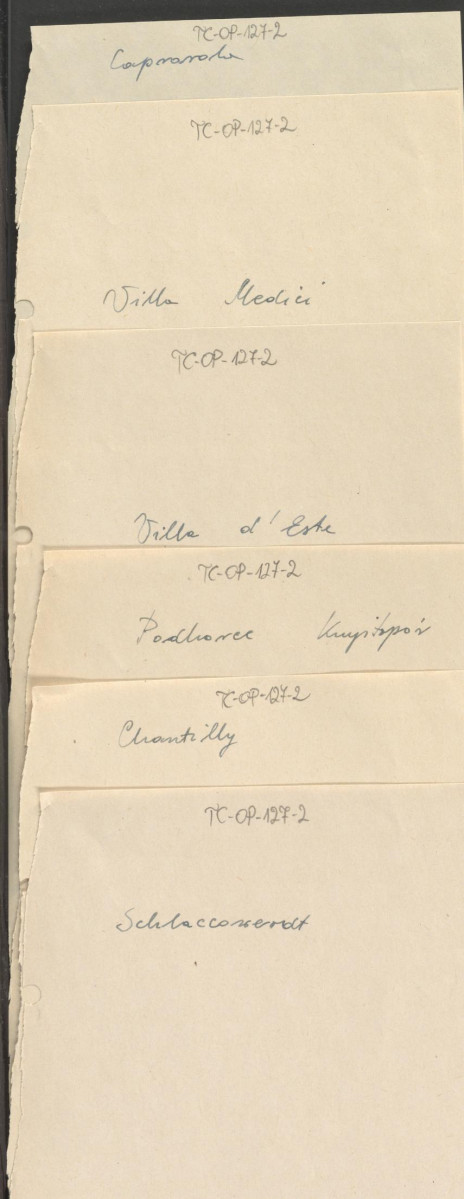 TC-OP-127-2
Caprarola
TC-OP-127-2
Villa Medici
TC-OP-127-2
Villa d'Este
TC-OP-127-2
Podhorce Krzyżtopór
TC-OP-127-2
Chantilly
TC-OP-127-2